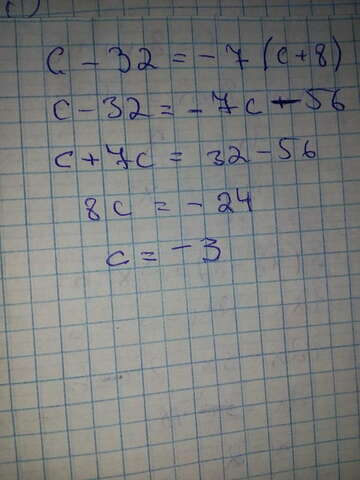 c - 32 = -7 (c+8)
c - 32 = -7c - 56
c + 7c = 32 - 56
8c = -24
c = -3